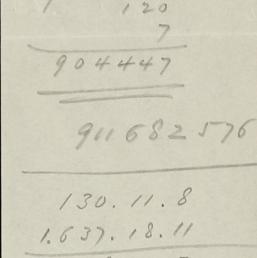 120
7
904447
911682576
130.11.8
1.637.18.11